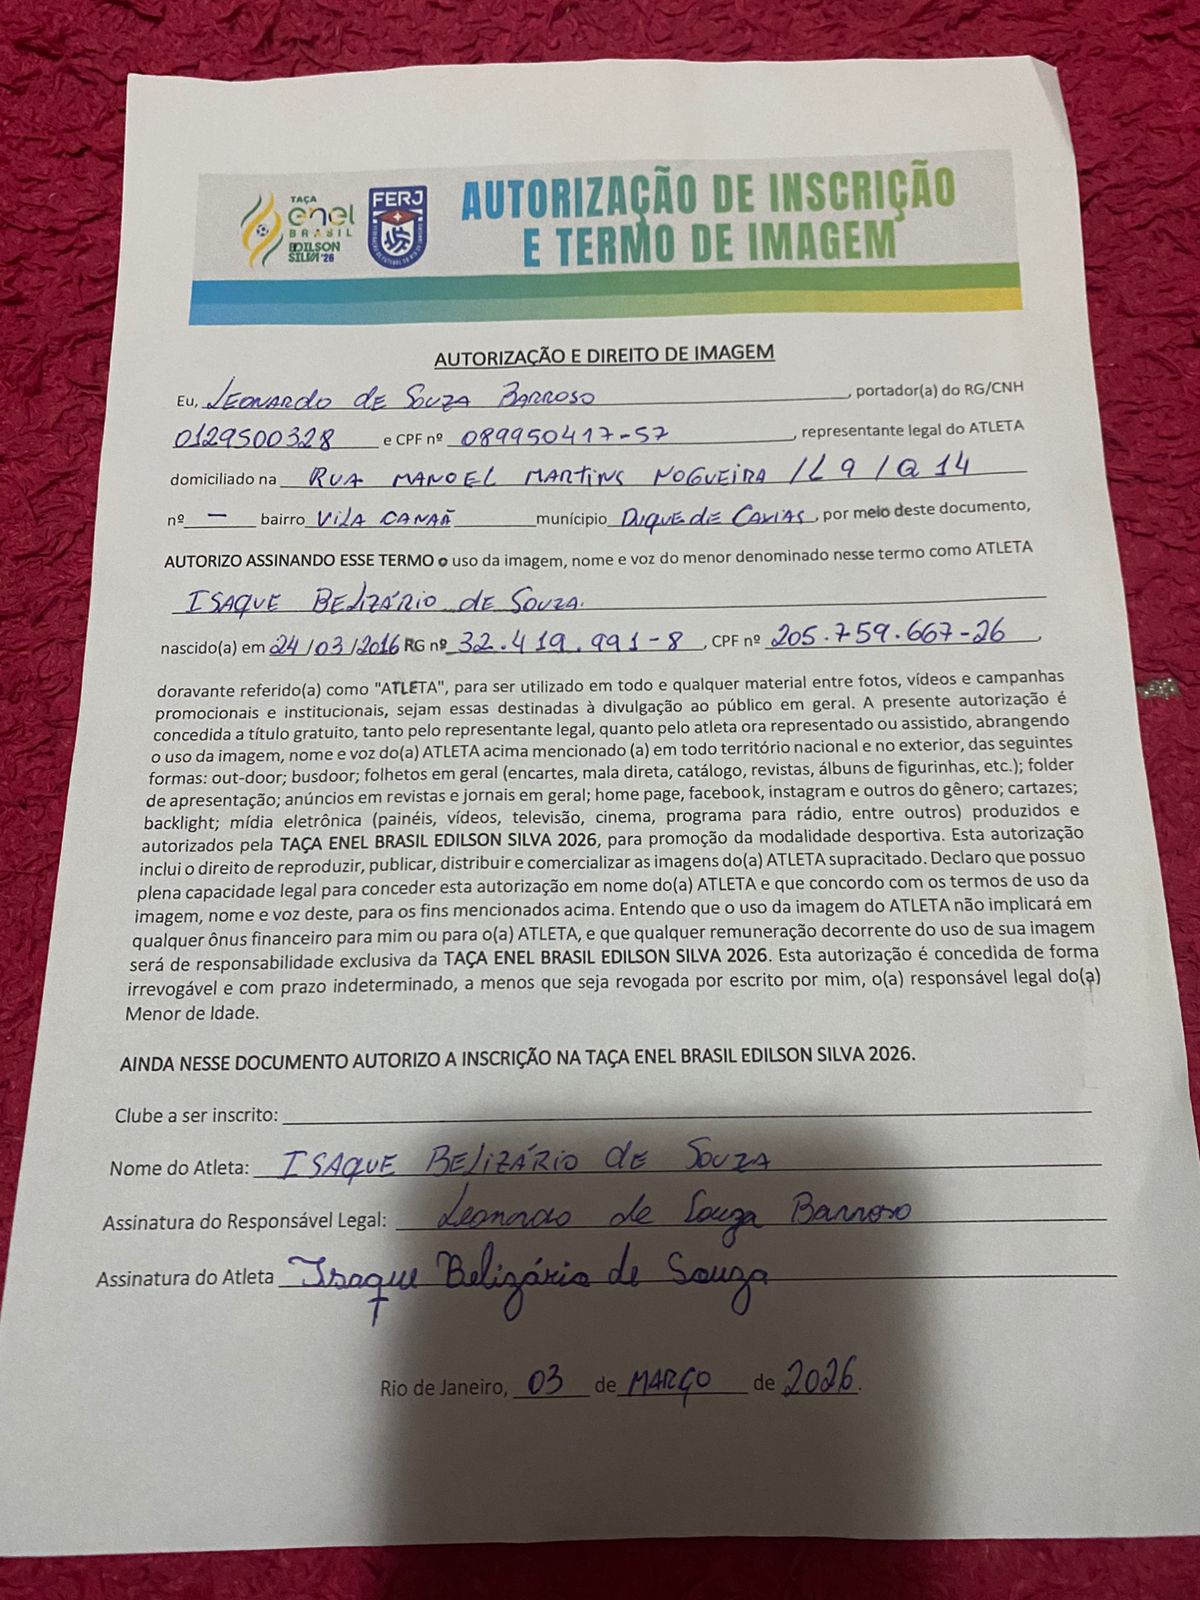 TAÇA
enel
BRASIL
EDILSON
SILVA '26
FERJ
AUTORIZAÇÃO DE INSCRIÇÃO
E TERMO DE IMAGEM
AUTORIZAÇÃO E DIREITO DE IMAGEM
Eu, LEONARDO DE SOUZA BARROSO, portador(a) do RG/CNH
0129500328 e CPF nº 089950417-57, representante legal do ATLETA
domiciliado na RUA MANOEL MARTINS NOGUEIRA / L 9 / Q 14
nº - bairro VILA CANAÃ município DUQUE DE CAXIAS, por meio deste documento,
AUTORIZO ASSINANDO ESSE TERMO o uso da imagem, nome e voz do menor denominado nesse termo como ATLETA
ISAQUE BELIZÁRIO DE SOUZA.
nascido(a) em 24/03/2016 RG nº 32.419.991-8, CPF nº 205.759.667-26,
doravante referido(a) como "ATLETA", para ser utilizado em todo e qualquer material entre fotos, vídeos e campanhas
promocionais e institucionais, sejam essas destinadas à divulgação ao público em geral. A presente autorização é
concedida a título gratuito, tanto pelo representante legal, quanto pelo atleta ora representado ou assistido, abrangendo
o uso da imagem, nome e voz do(a) ATLETA acima mencionado (a) em todo território nacional e no exterior, das seguintes
formas: out-door; busdoor; folhetos em geral (encartes, mala direta, catálogo, revistas, álbuns de figurinhas, etc.); folder
de apresentação; anúncios em revistas e jornais em geral; home page, facebook, instagram e outros do gênero; cartazes;
backlight; mídia eletrônica (painéis, vídeos, televisão, cinema, programa para rádio, entre outros) produzidos e
autorizados pela TAÇA ENEL BRASIL EDILSON SILVA 2026, para promoção da modalidade desportiva. Esta autorização
inclui o direito de reproduzir, publicar, distribuir e comercializar as imagens do(a) ATLETA supracitado. Declaro que possuo
plena capacidade legal para conceder esta autorização em nome do(a) ATLETA e que concordo com os termos de uso da
imagem, nome e voz deste, para os fins mencionados acima. Entendo que o uso da imagem do ATLETA não implicará em
qualquer ônus financeiro para mim ou para o(a) ATLETA, e que qualquer remuneração decorrente do uso de sua imagem
será de responsabilidade exclusiva da TAÇA ENEL BRASIL EDILSON SILVA 2026. Esta autorização é concedida de forma
irrevogável e com prazo indeterminado, a menos que seja revogada por escrito por mim, o(a) responsável legal do(a)
Menor de Idade.
AINDA NESSE DOCUMENTO AUTORIZO A INSCRIÇÃO NA TAÇA ENEL BRASIL EDILSON SILVA 2026.
Clube a ser inscrito:
Nome do Atleta: ISAQUE BELIZÁRIO DE SOUZA
Assinatura do Responsável Legal: Leonardo de Souza Barroso
Assinatura do Atleta Isaque Belizário de Souza
Rio de Janeiro, 03 de MARÇO de 2026.